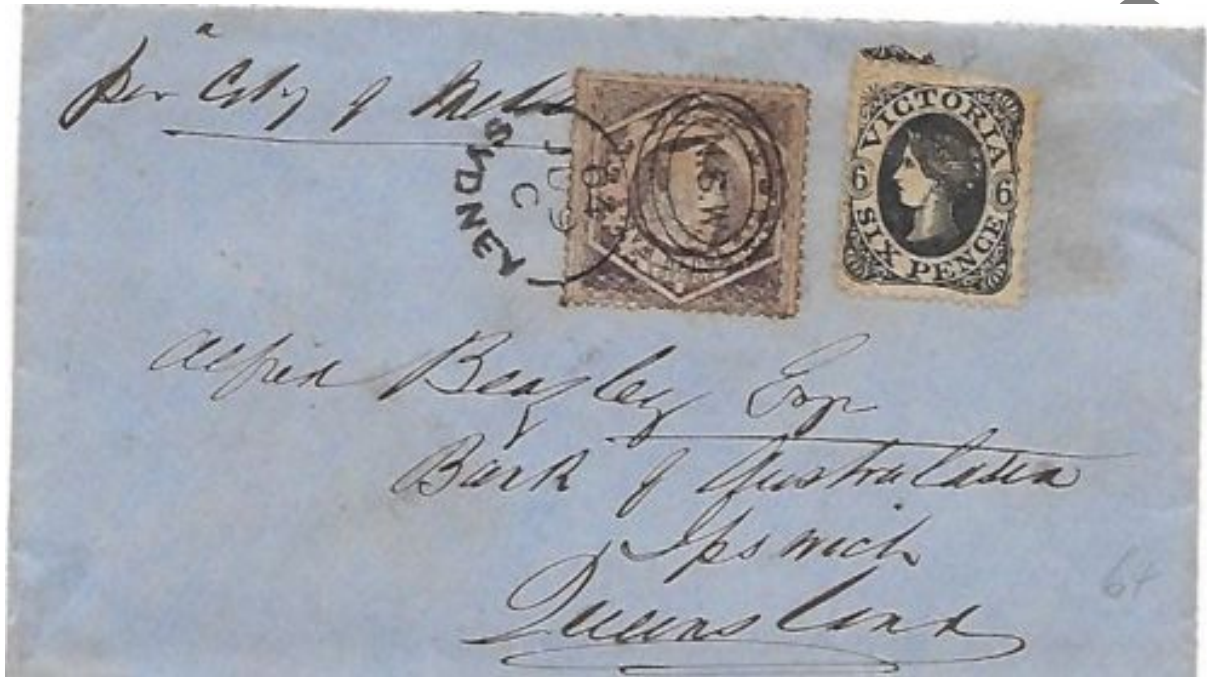 per "City of Melb
SYDNEY
C
JU 9
64
N.S.W
WALES
VICTORIA
6 6
SIX PENCE
Alfred Beazley Esqr
Bank of Australasia
Ipswich
Queensland
64